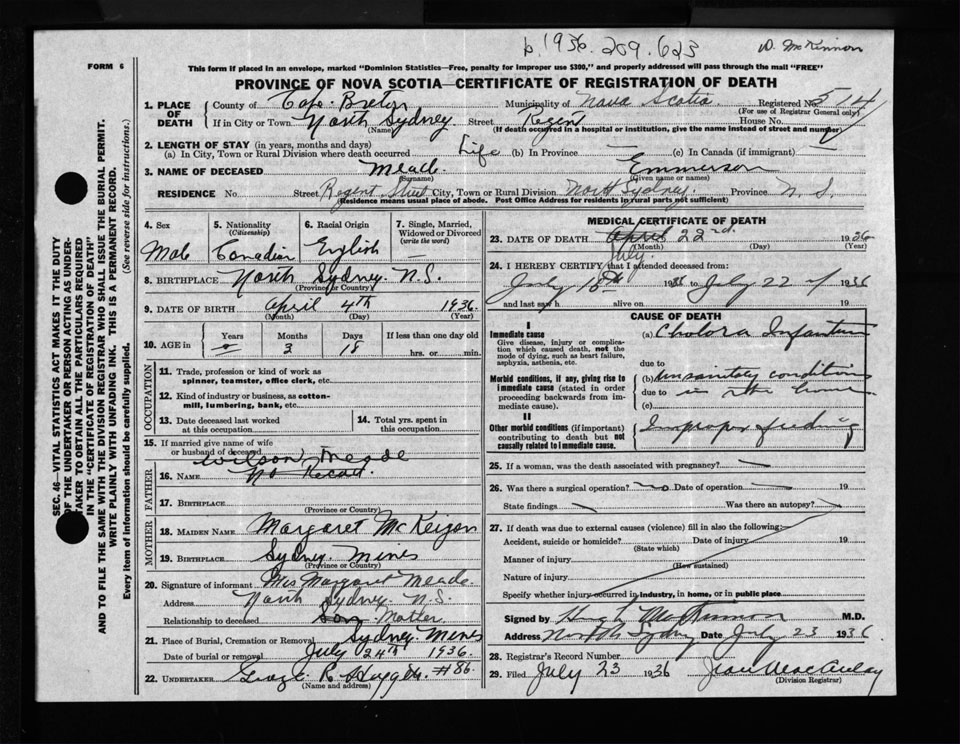 b. 1936. 209. 623
D. McKinnon
FORM 6
This form if placed in an envelope, marked "Dominion Statistics—Free, penalty for improper use $300," and properly addressed will pass through the mail "FREE"
PROVINCE OF NOVA SCOTIA—CERTIFICATE OF REGISTRATION OF DEATH
1. PLACE OF DEATH County of Cape Breton Municipality of Nova Scotia Registered No.
(For use of Registrar General only)
If in City or Town North Sydney Street Regen House No.
(Name) (If death occurred in a hospital or institution, give the name instead of street and number)
2. LENGTH OF STAY (in years, months and days)
(a) In City, Town or Rural Division where death occurred Life (b) In Province — (c) In Canada (if immigrant) —
3. NAME OF DECEASED Meade Emmerson
(Surname) (Given name or names)
RESIDENCE No. Street Regent Street City, Town or Rural Division North Sydney. Province N.S.
(Residence means usual place of abode. Post Office Address for residents in rural parts not sufficient)
4. Sex
Male
5. Nationality (Citizenship)
Canadian
6. Racial Origin
English
7. Single, Married, Widowed or Divorced (write the word)
—
8. BIRTHPLACE North Sydney. N.S.
(Province or Country)
9. DATE OF BIRTH April 4th 1936
(Month) (Day) (Year)
10. AGE in Years — Months 3 Days 18 If less than one day old
hrs. or min.
OCCUPATION
11. Trade, profession or kind of work as spinner, teamster, office clerk, etc.
12. Kind of industry or business, as cotton-mill, lumbering, bank, etc.
13. Date deceased last worked at this occupation
14. Total yrs. spent in this occupation
15. If married give name of wife or husband of deceased
FATHER
Wilson Meade
16. NAME No Record.
17. BIRTHPLACE
(Province or Country)
MOTHER
18. MAIDEN NAME Margaret McKeigan
19. BIRTHPLACE Sydney Mines
(Province or Country)
20. Signature of informant Mrs Margaret Meade
Address North Sydney. N.S.
Relationship to deceased Son Mother
21. Place of Burial, Cremation or Removal Sydney Mines
Date of burial or removal July 24th 1936.
22. UNDERTAKER R. #86.
(Name and address)
MEDICAL CERTIFICATE OF DEATH
23. DATE OF DEATH April 22nd 1936
July
(Month) (Day) (Year)
24. I HEREBY CERTIFY that I attended deceased from:
July 18th 1936 to July 22 1936
and last saw h alive on 19
CAUSE OF DEATH
I
Immediate cause
Give disease, injury or complication which caused death, not the mode of dying, such as heart failure, asphyxia, asthenia, etc.
(a) Cholera Infantum
due to
Morbid conditions, if any, giving rise to immediate cause (stated in order proceeding backwards from immediate cause).
(b) unsanitary conditions
due to in the home
(c)
II
Other morbid conditions (if important) contributing to death but not causally related to immediate cause.
Improper feeding
25. If a woman, was the death associated with pregnancy? —
26. Was there a surgical operation? no Date of operation — 19
State findings — Was there an autopsy? —
27. If death was due to external causes (violence) fill in also the following:
Accident, suicide or homicide? Date of injury 19
(State which)
Manner of injury
(How sustained)
Nature of injury
Specify whether injury occurred in industry, in home, or in public place
Signed by Hugh McKinnon M.D.
Address North Sydney Date July 23 1936
28. Registrar's Record Number
29. Filed July 23 1936 Jean MacAulay
(Division Registrar)
SEC. 46—VITAL STATISTICS ACT MAKES IT THE DUTY
OF THE UNDERTAKER OR PERSON ACTING AS UNDER-
TAKER TO OBTAIN ALL THE PARTICULARS REQUIRED
IN THE "CERTIFICATE OF REGISTRATION OF DEATH"
AND TO FILE THE SAME WITH THE DIVISION REGISTRAR WHO SHALL ISSUE THE BURIAL PERMIT.
WRITE PLAINLY WITH UNFADING INK. THIS IS A PERMANENT RECORD.
Every item of information should be carefully supplied. (See reverse side for instructions.)